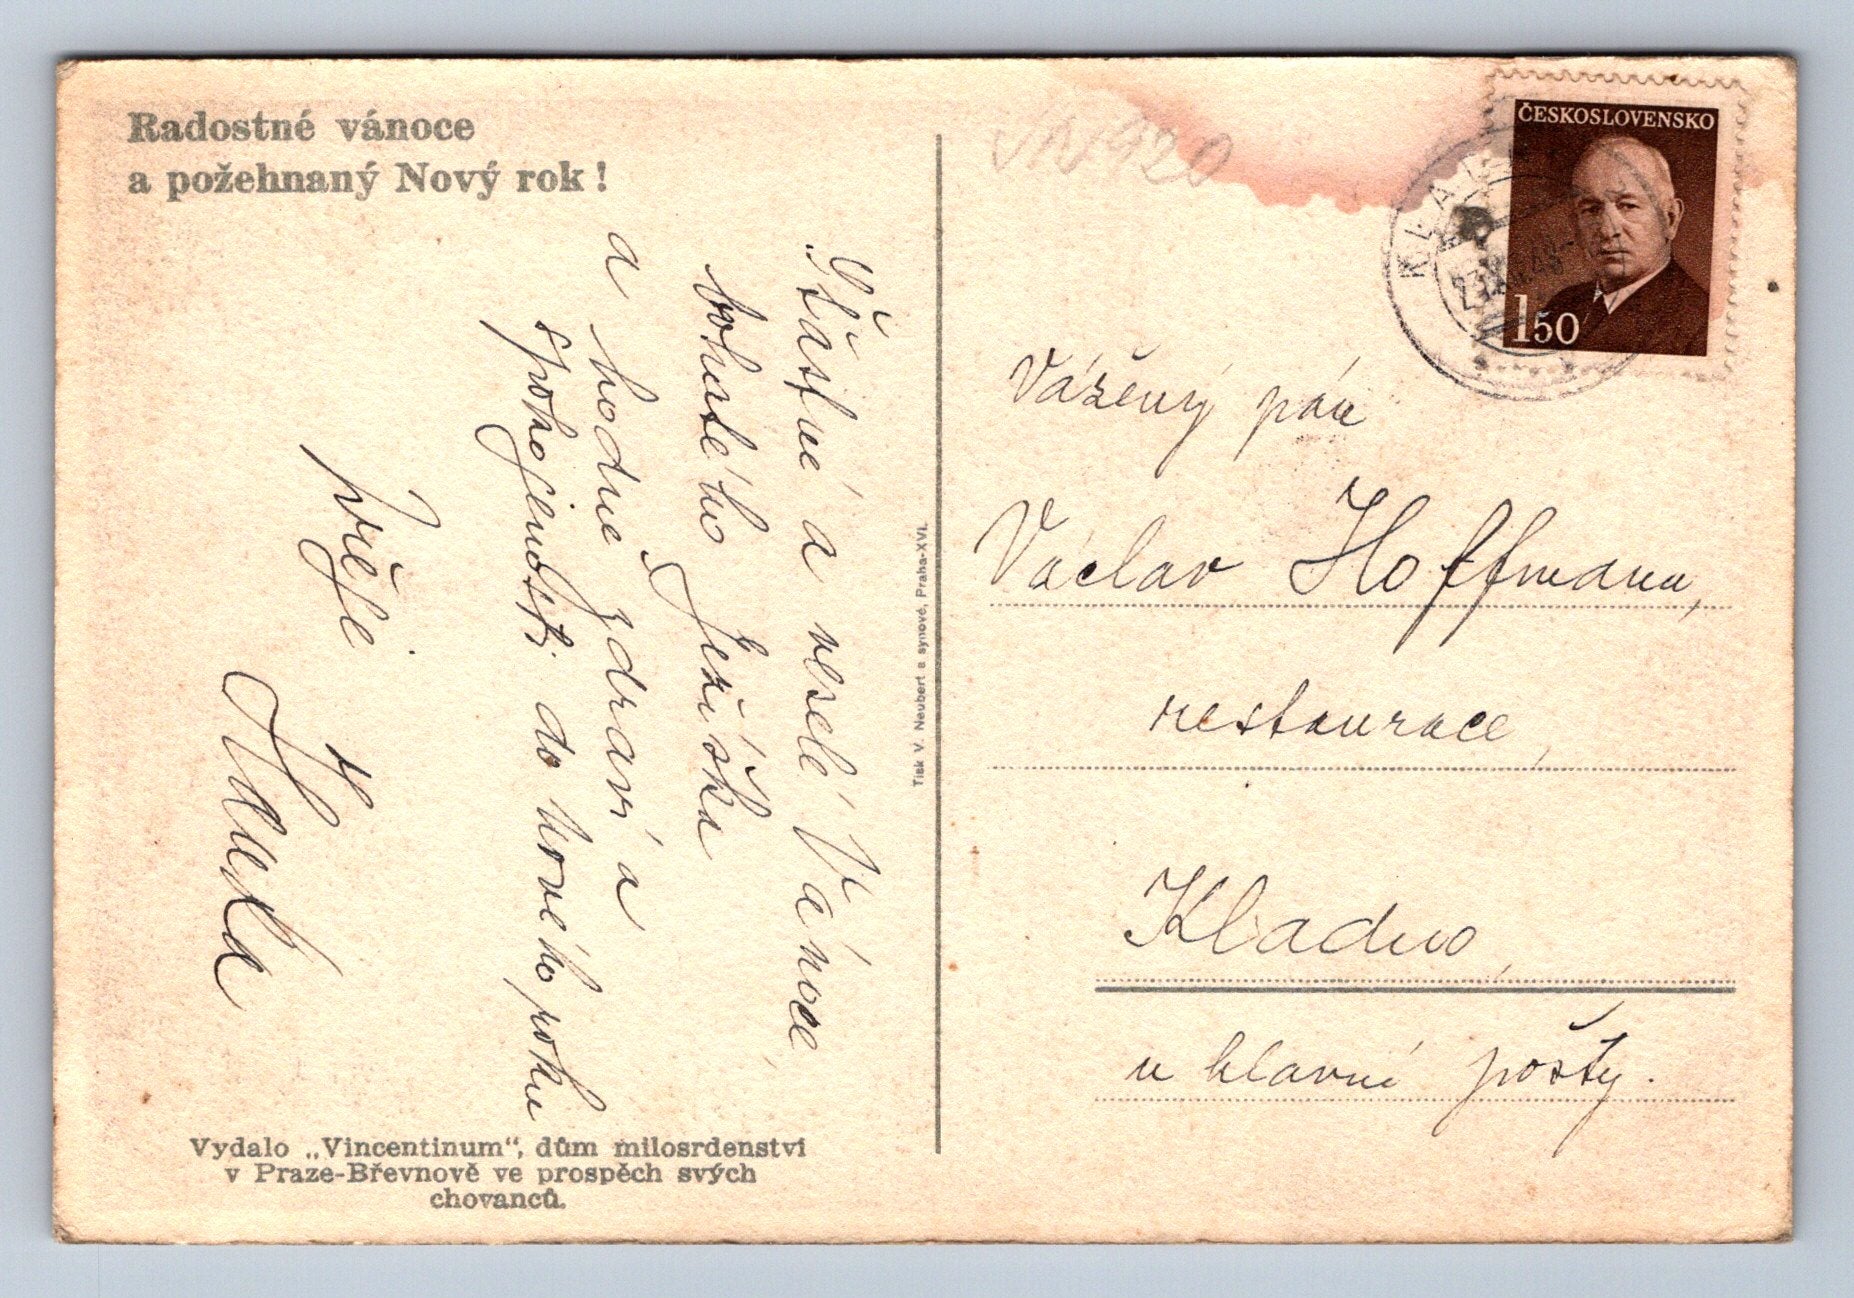 Radostné vánoce
a požehnaný Nový rok!
Šťastné a veselé Vánoce,
bohatého Ježíška
a hodně zdraví a
spokojenosti do nového roku
přeje
Vydalo „Vincentinum“, dům milosrdenství
v Praze-Břevnově ve prospěch svých
chovanců.
Tisk V. Neubert a synové, Praha-XVI.
ČESKOSLOVENSKO
1.50
KLADNO
Vážený pán
Václav Hoffmann,
restaurace,
Kladno,
u hlavní pošty.